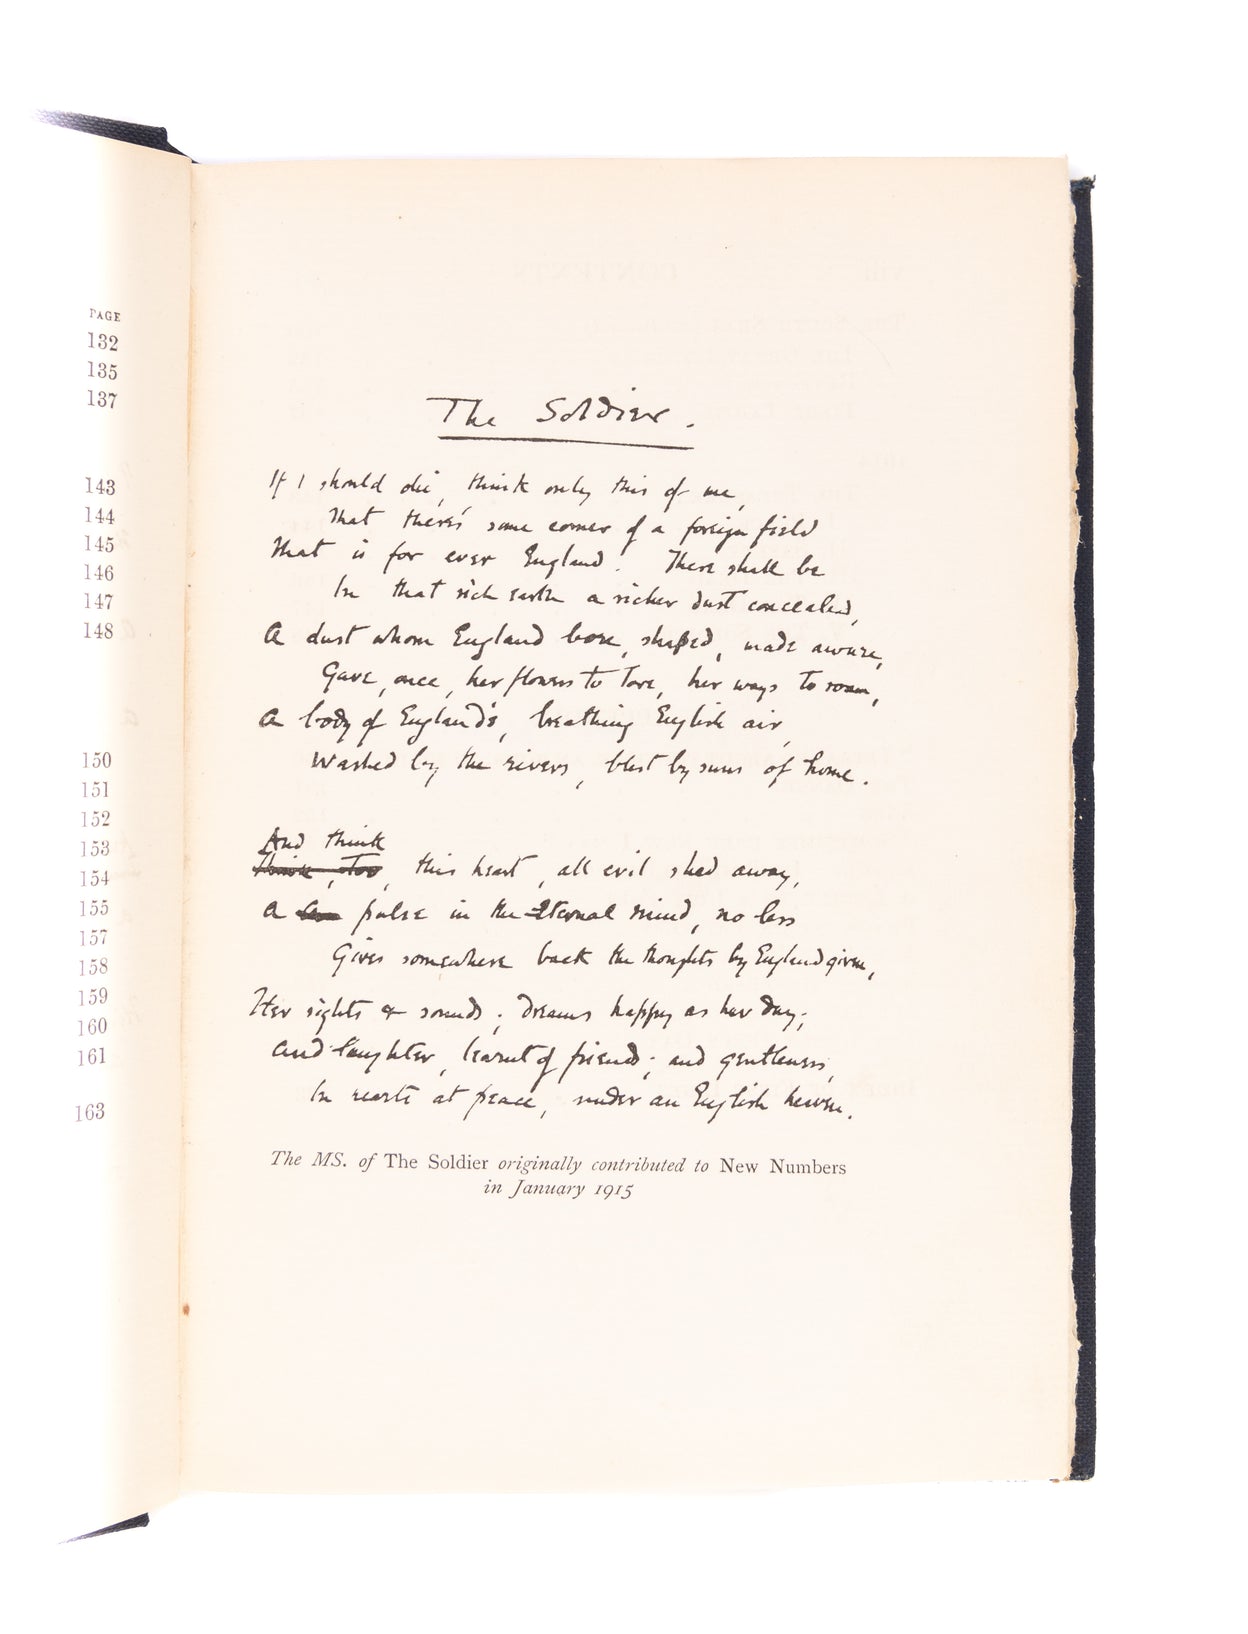 PAGE
132
135
137
143
144
145
146
147
148
150
151
152
153
154
155
157
158
159
160
161
163
The Soldier.
If I should die, think only this of me,
That there's some corner of a foreign field
That is for ever England. There shall be
In that rich earth a richer dust concealed,
A dust whom England bore, shaped, made aware,
Gave, once, her flowers to love, her ways to roam,
A body of England's, breathing English air,
Washed by the rivers, blest by suns of home.
And think
Think, too, this heart, all evil shed away,
A pulse in the Eternal mind, no less
Gives somewhere back the thoughts by England given,
Her sights & sounds; dreams happy as her day;
And laughter, learnt of friends; and gentleness,
In hearts at peace, under an English heaven.
The MS. of The Soldier originally contributed to New Numbers
in January 1915